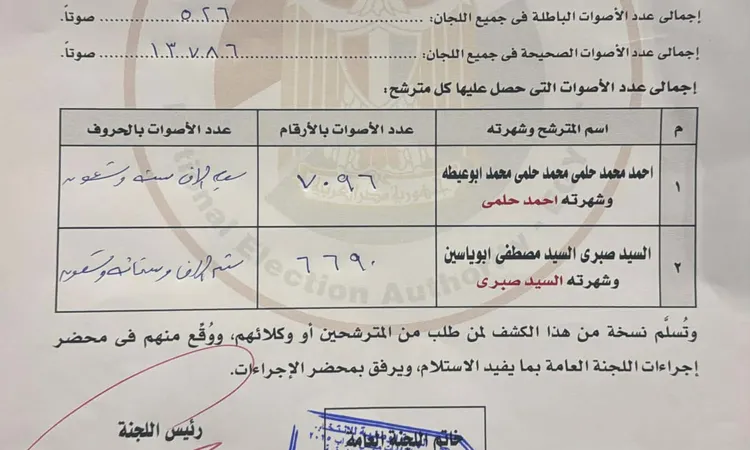 إجمالى عدد الأصوات الباطلة فى جميع اللجان: ٥٢٦ صوتاً.
إجمالى عدد الأصوات الصحيحة فى جميع اللجان: ١٣٧٨٦ صوتاً.
إجمالى عدد الأصوات التى حصل عليها كل مترشح:
م اسم المترشح وشهرته عدد الأصوات بالأرقام عدد الأصوات بالحروف
١ احمد محمد حلمى محمد حلمى محمد ابوعيطه ٧٠٩٦ سبعة الاف ستة وتسعون
وشهرته احمد حلمى
٢ السيد صبرى السيد مصطفى ابوياسين ٦٦٩٠ ستة الاف وستمائة وتسعون
وشهرته السيد صبرى
وتُسلَّم نسخة من هذا الكشف لمن طلب من المترشحين أو وكلائهم، ووُقّع منهم فى محضر
إجراءات اللجنة العامة بما يفيد الاستلام، ويرفق بمحضر الإجراءات.
خاتم اللجنة العامة رئيس اللجنة
National Election Authority
جمهورية مصر العربية